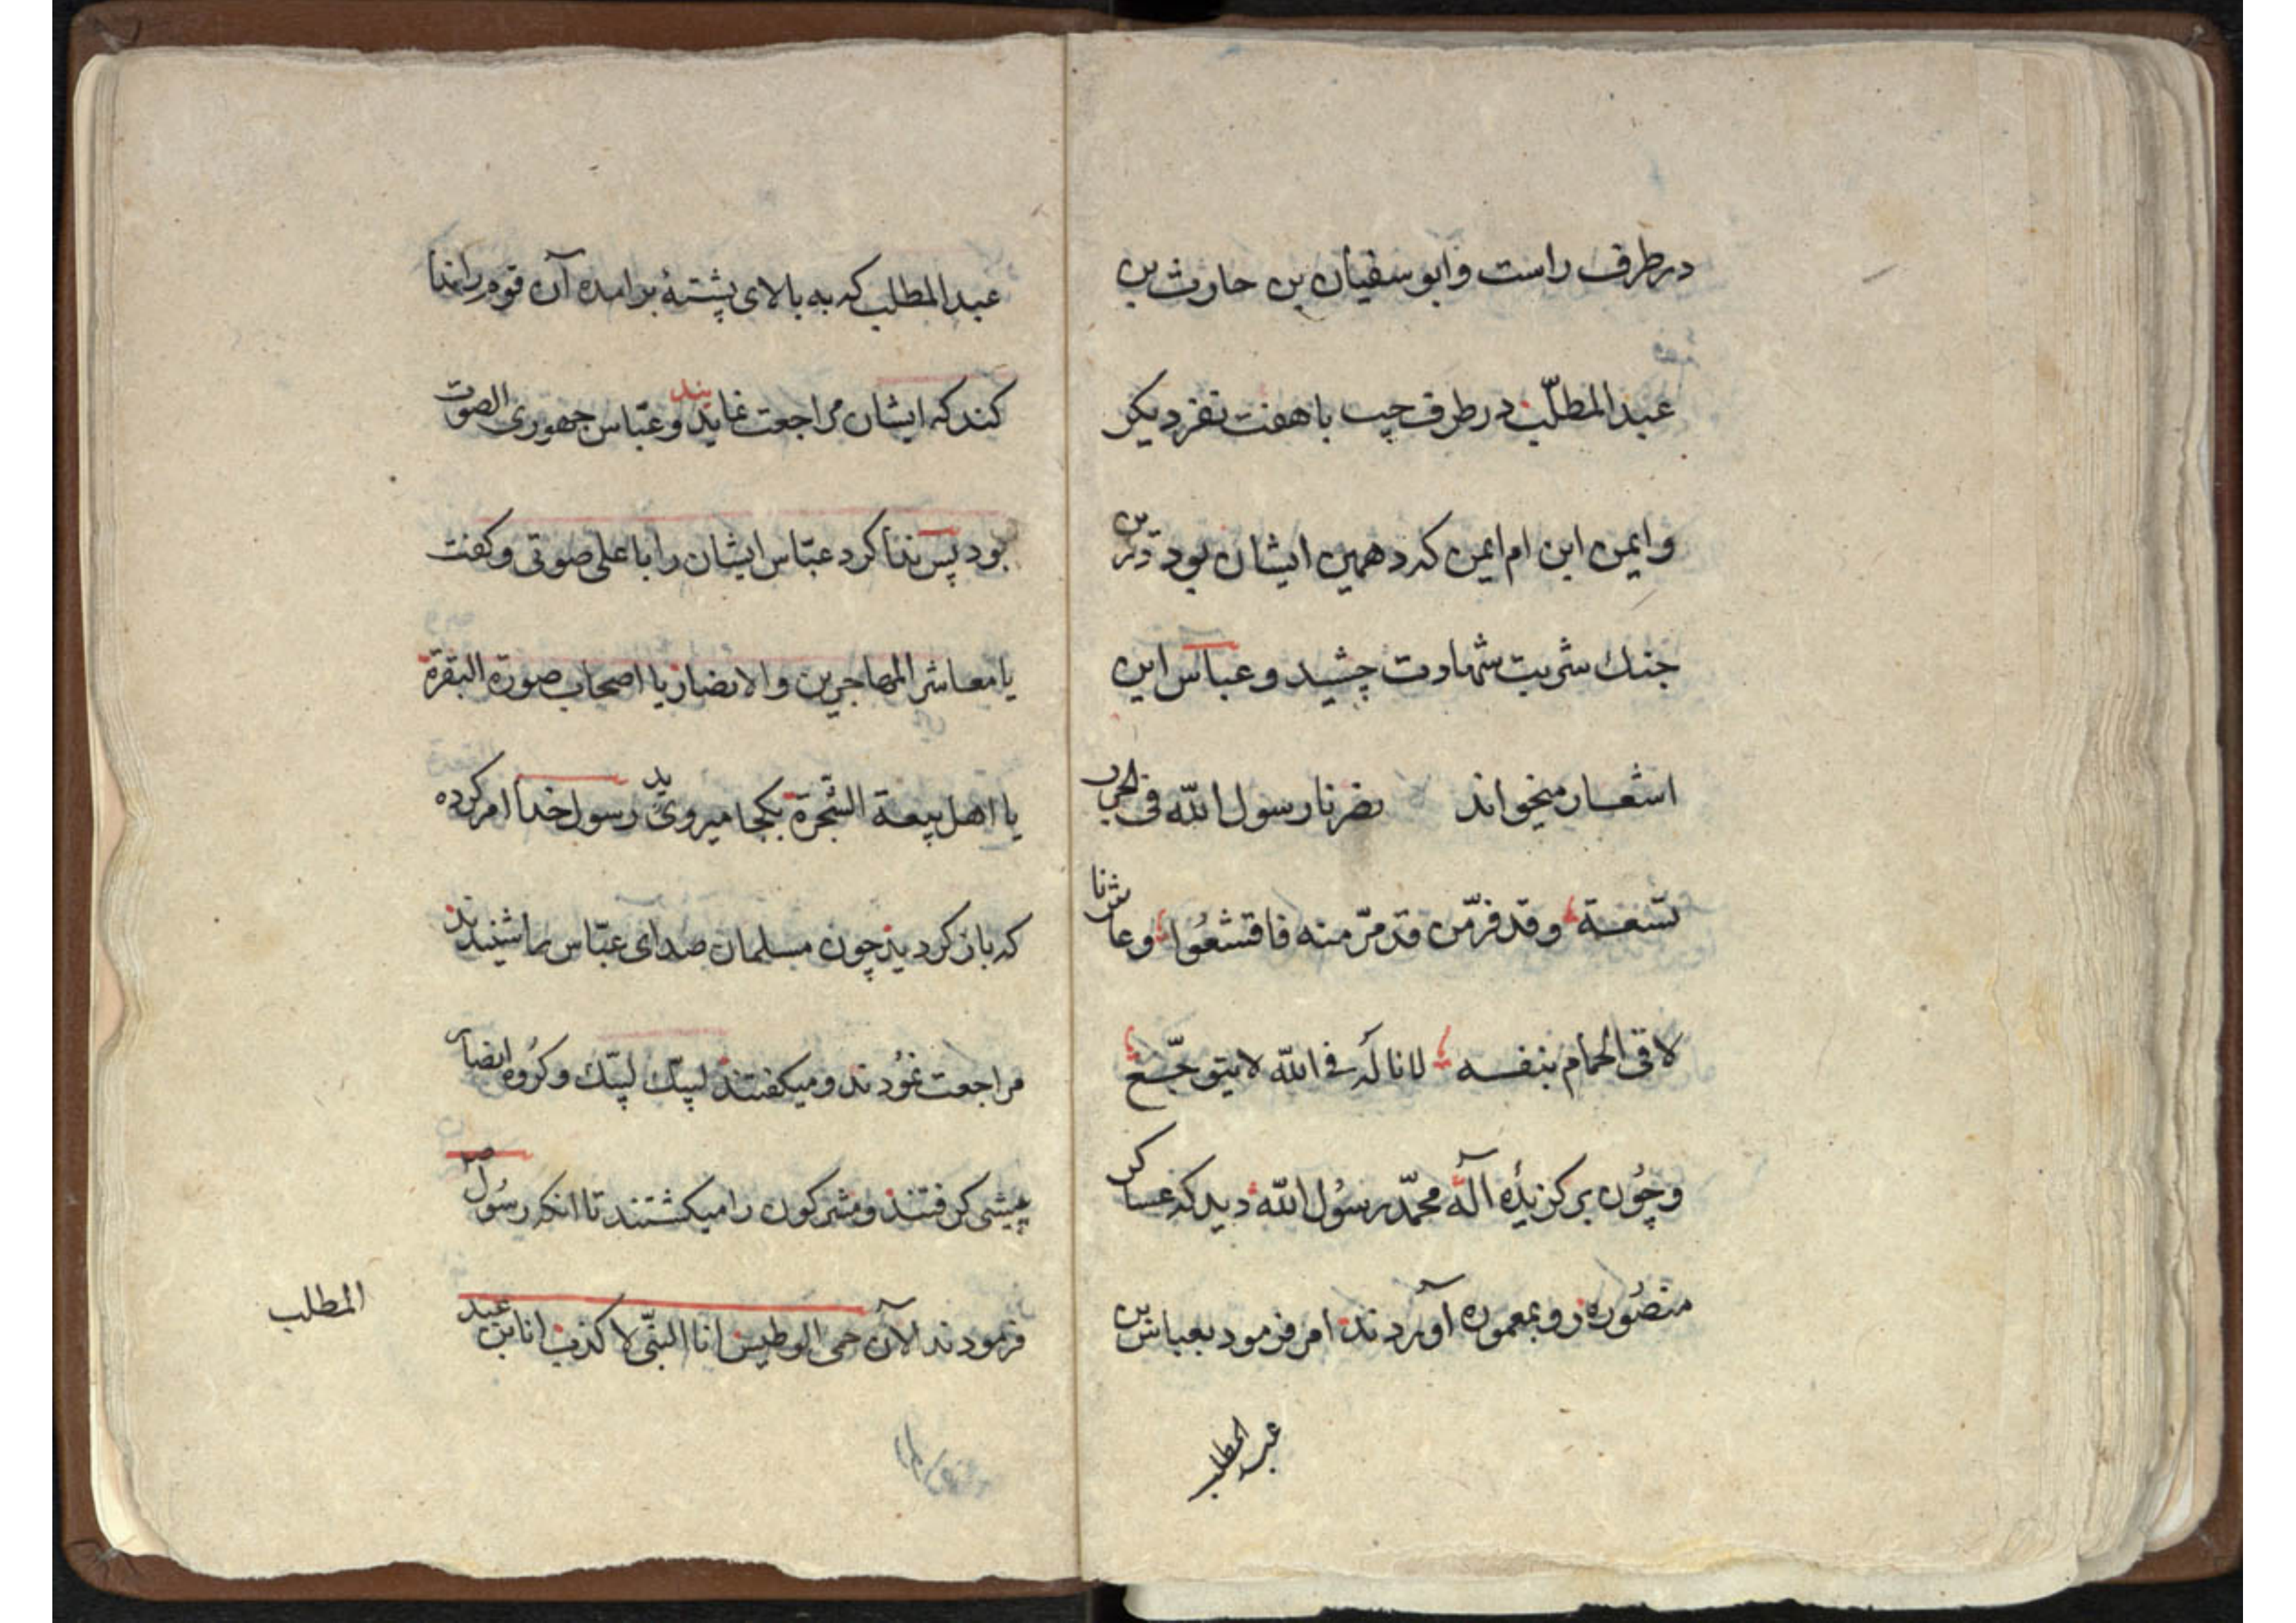 در طرف راست و ابو سفیان بن حارث بن
عبد المطلّب در طرف چپ با هفت نفر دیکر
و ایمن ابن ام ایمن که دهمین ایشان بود و درین
جنك شربت شهادت چشید و عباس این
اشعار میخواند نصرنا رسول الله فی الحرب
تسعة وقد فرّ من قد فرّ منه فاقشعُوا وعاشرنا
لاقی الحمام بنفسه لما ناله فی الله لا یتوجّع
و چُون برکزیدهٔ آله محمّد رسُول الله دید که عساکر
منصُوره رو بمعموره آوردند امر فرمود بعباس بن
عبد المطلب
عبد المطلب که به بالای پشتهٔ برامده آن قوم را ندا
کند که ایشان مراجعت نمایند و عبّاس جهوری الصوت
بود پس ندا کرد عبّاس ایشان را با علی صوتی و کفت
یا معاشر المهاجرین و الانصار یا اصحاب صورة البقرة
یا اهل بیعة الشجرة بکجا میروید رسول خدا امر کرده
که باز کردید چون مسلمان صدای عبّاس را شنیدند
مراجعت نمُودند و میکفتند لبیّك لبیّك و کرُوه انصار
پیشی کرفتند و مشرکون را میکشتند تا انکه رسُول ص
فرمودند الآن حمی الوطیس انا النبّی لا کذب انا بن عبد
المطلب